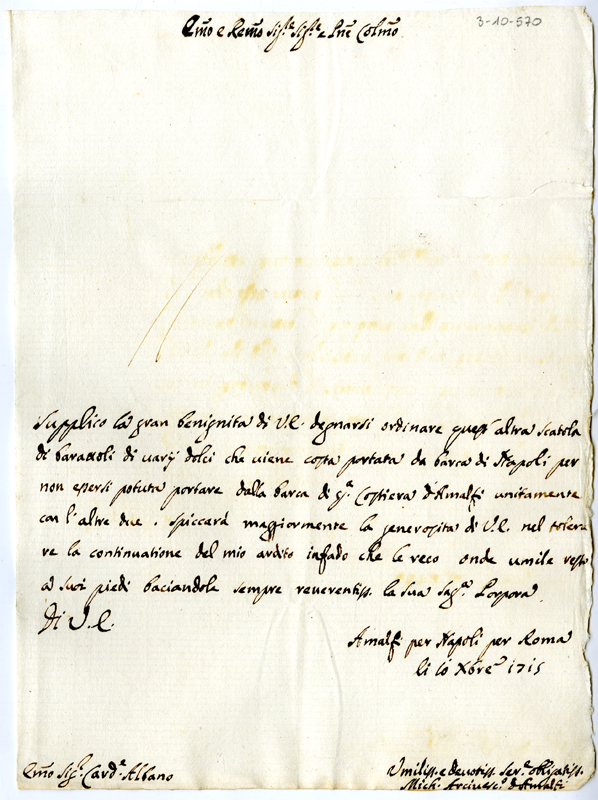 3-10-570
Em̃o e Rem̃o Sig.re Sig.re e Pne Colm̃o
Supplico la gran benignita di V.E. degnarsi ordinare quest'altra scatola
di barattoli di varij dolci che viene costa portata da barca di Napoli per
non essersi potuta portare dalla barca di q.a Costiera d'Amalfi unitamente
con l'altre due. Spiccerà maggiormente la generosita di V.E. nel tolera
re la continuatione del mio ardito infado che le reco onde umile resto
a suoi piedi baciandola sempre reverentiss. la sua Sag.a Porpora
Di V.E.
Amalfi per Napoli per Roma
li 10 Xbre 1715
Em̃o Sig.r Card.e Albano
Umiliss. e devotiss. Ser.e obligatiss.
Mich. Arcivesc.o d'Amalfi